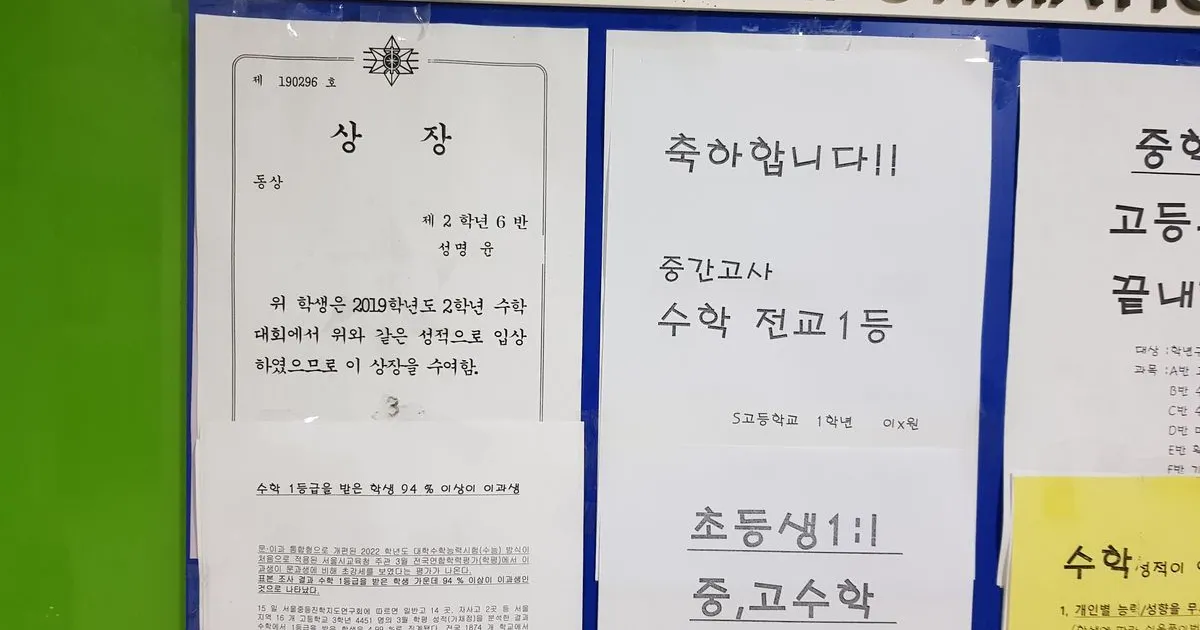 제 190296 호
상 장
동상
제 2 학년 6 반
성명 윤
위 학생은 2019학년도 2학년 수학
대회에서 위와 같은 성적으로 입상
하였으므로 이 상장을 수여함.
3
수학 1등급을 받은 학생 94 % 이상이 이과생
문·이과 통합형으로 개편된 2022 학년도 대학수학능력시험(수능) 방식이
처음으로 적용된 서울시교육청 주관 3월 전국연합학력평가(학평)에서 이
과생이 문과생에 비해 초강세를 보였다는 평가가 나온다.
표본 조사 결과 수학 1등급을 받은 학생 가운데 94 % 이상이 이과생인
것으로 나타났다.
15 일 서울중등진학지도연구회에 따르면 일반고 14 곳, 자사고 2곳 등 서울
지역 16 개 고등학교 3학년 4451 명의 3월 학평 성적(가채점)을 분석한 결과
수학에서 1등급을 받은 학생
축하합니다!!
중간고사
수학 전교1등
S고등학교 1학년 이x원
초등생1:1
중,고수학
중학
고등
끝내
대상 :학년
과목 :A반
B반
C반
D반
E반
F반
수학 성적이
1. 개인별 능력/성향을